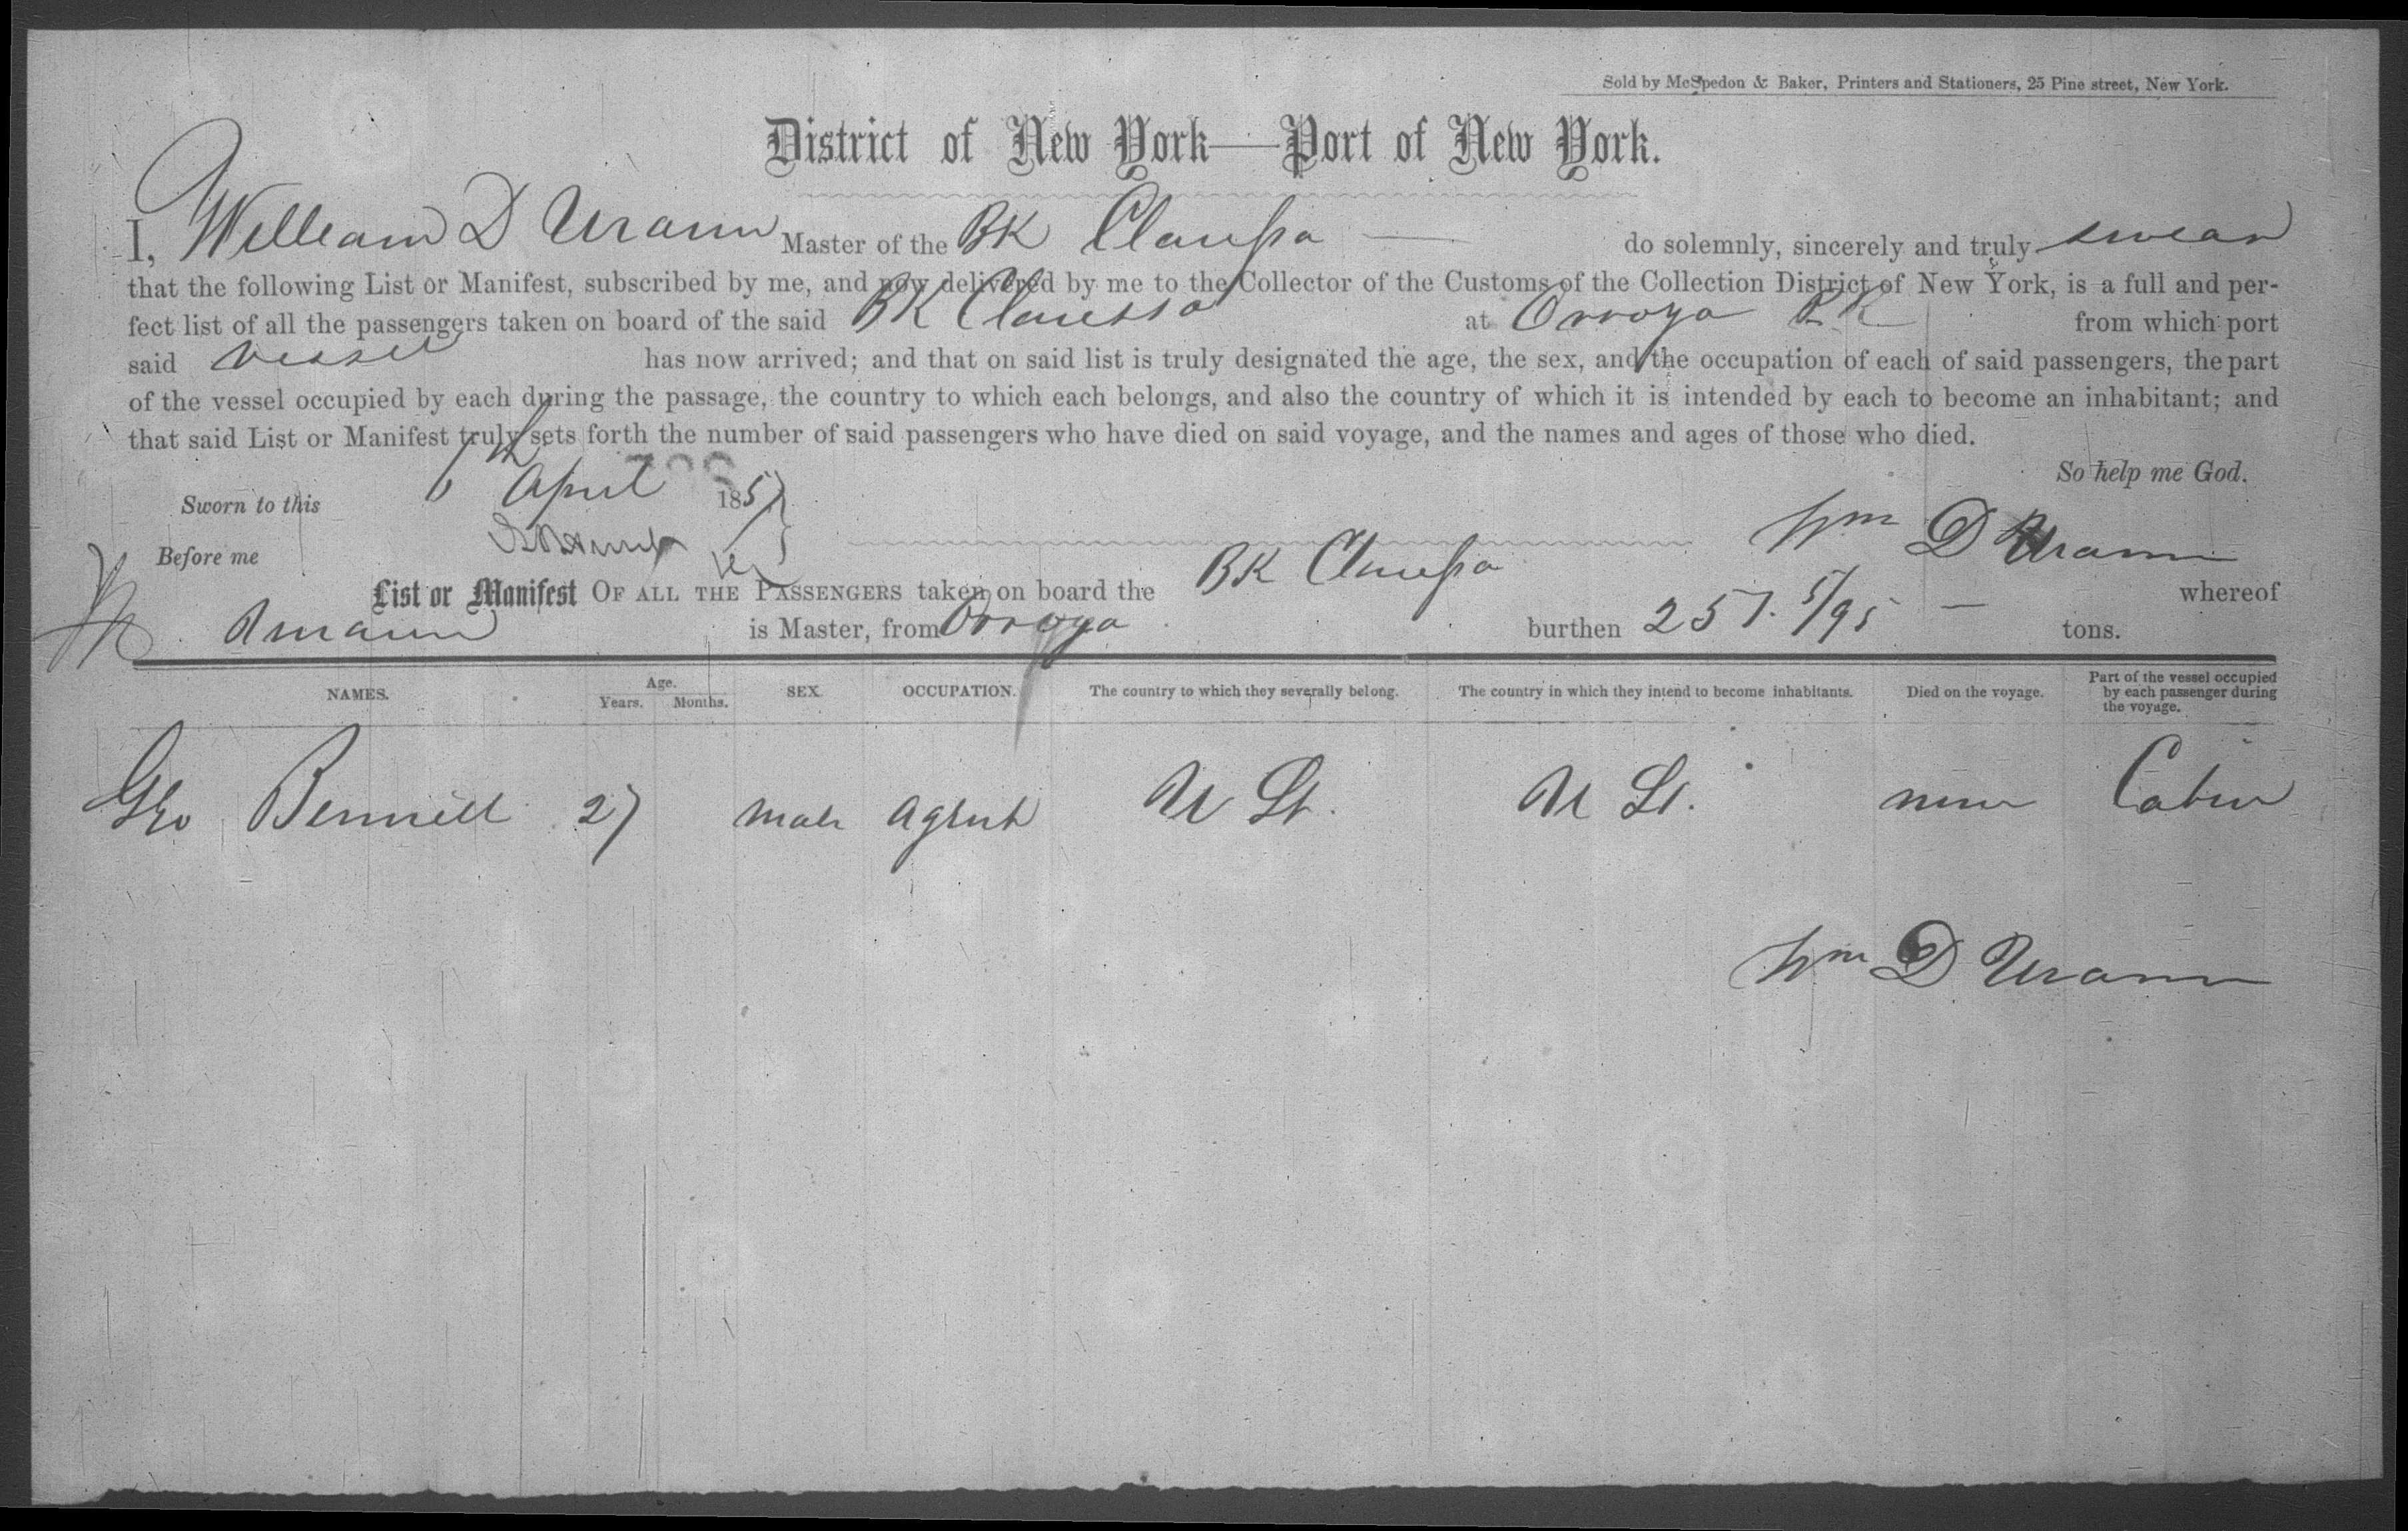 Sold by McSpedon & Baker, Printers and Stationers, 25 Pine street, New York.
District of New York—Port of New York.
I, William D Urann Master of the BK Claussa — do solemnly, sincerely and truly swear
that the following List or Manifest, subscribed by me, and now delivered by me to the Collector of the Customs of the Collection District of New York, is a full and per-
fect list of all the passengers taken on board of the said BK Claussa at Orroyo P.R from which port
said vessel has now arrived; and that on said list is truly designated the age, the sex, and the occupation of each of said passengers, the part
of the vessel occupied by each during the passage, the country to which each belongs, and also the country of which it is intended by each to become an inhabitant; and
that said List or Manifest truly sets forth the number of said passengers who have died on said voyage, and the names and ages of those who died.
So help me God.
Sworn to this April 1857
Before me
Wm D Urann
List or Manifest OF ALL THE PASSENGERS taken on board the BK Claussa whereof
Urann is Master, from Orroyo burthen 257. 5/95 — tons.
NAMES. Age. Years. Months. SEX. OCCUPATION. The country to which they severally belong. The country in which they intend to become inhabitants. Died on the voyage. Part of the vessel occupied by each passenger during the voyage.
Geo Bennett 27 male Agent U St. U St. none Cabin
Wm D Urann